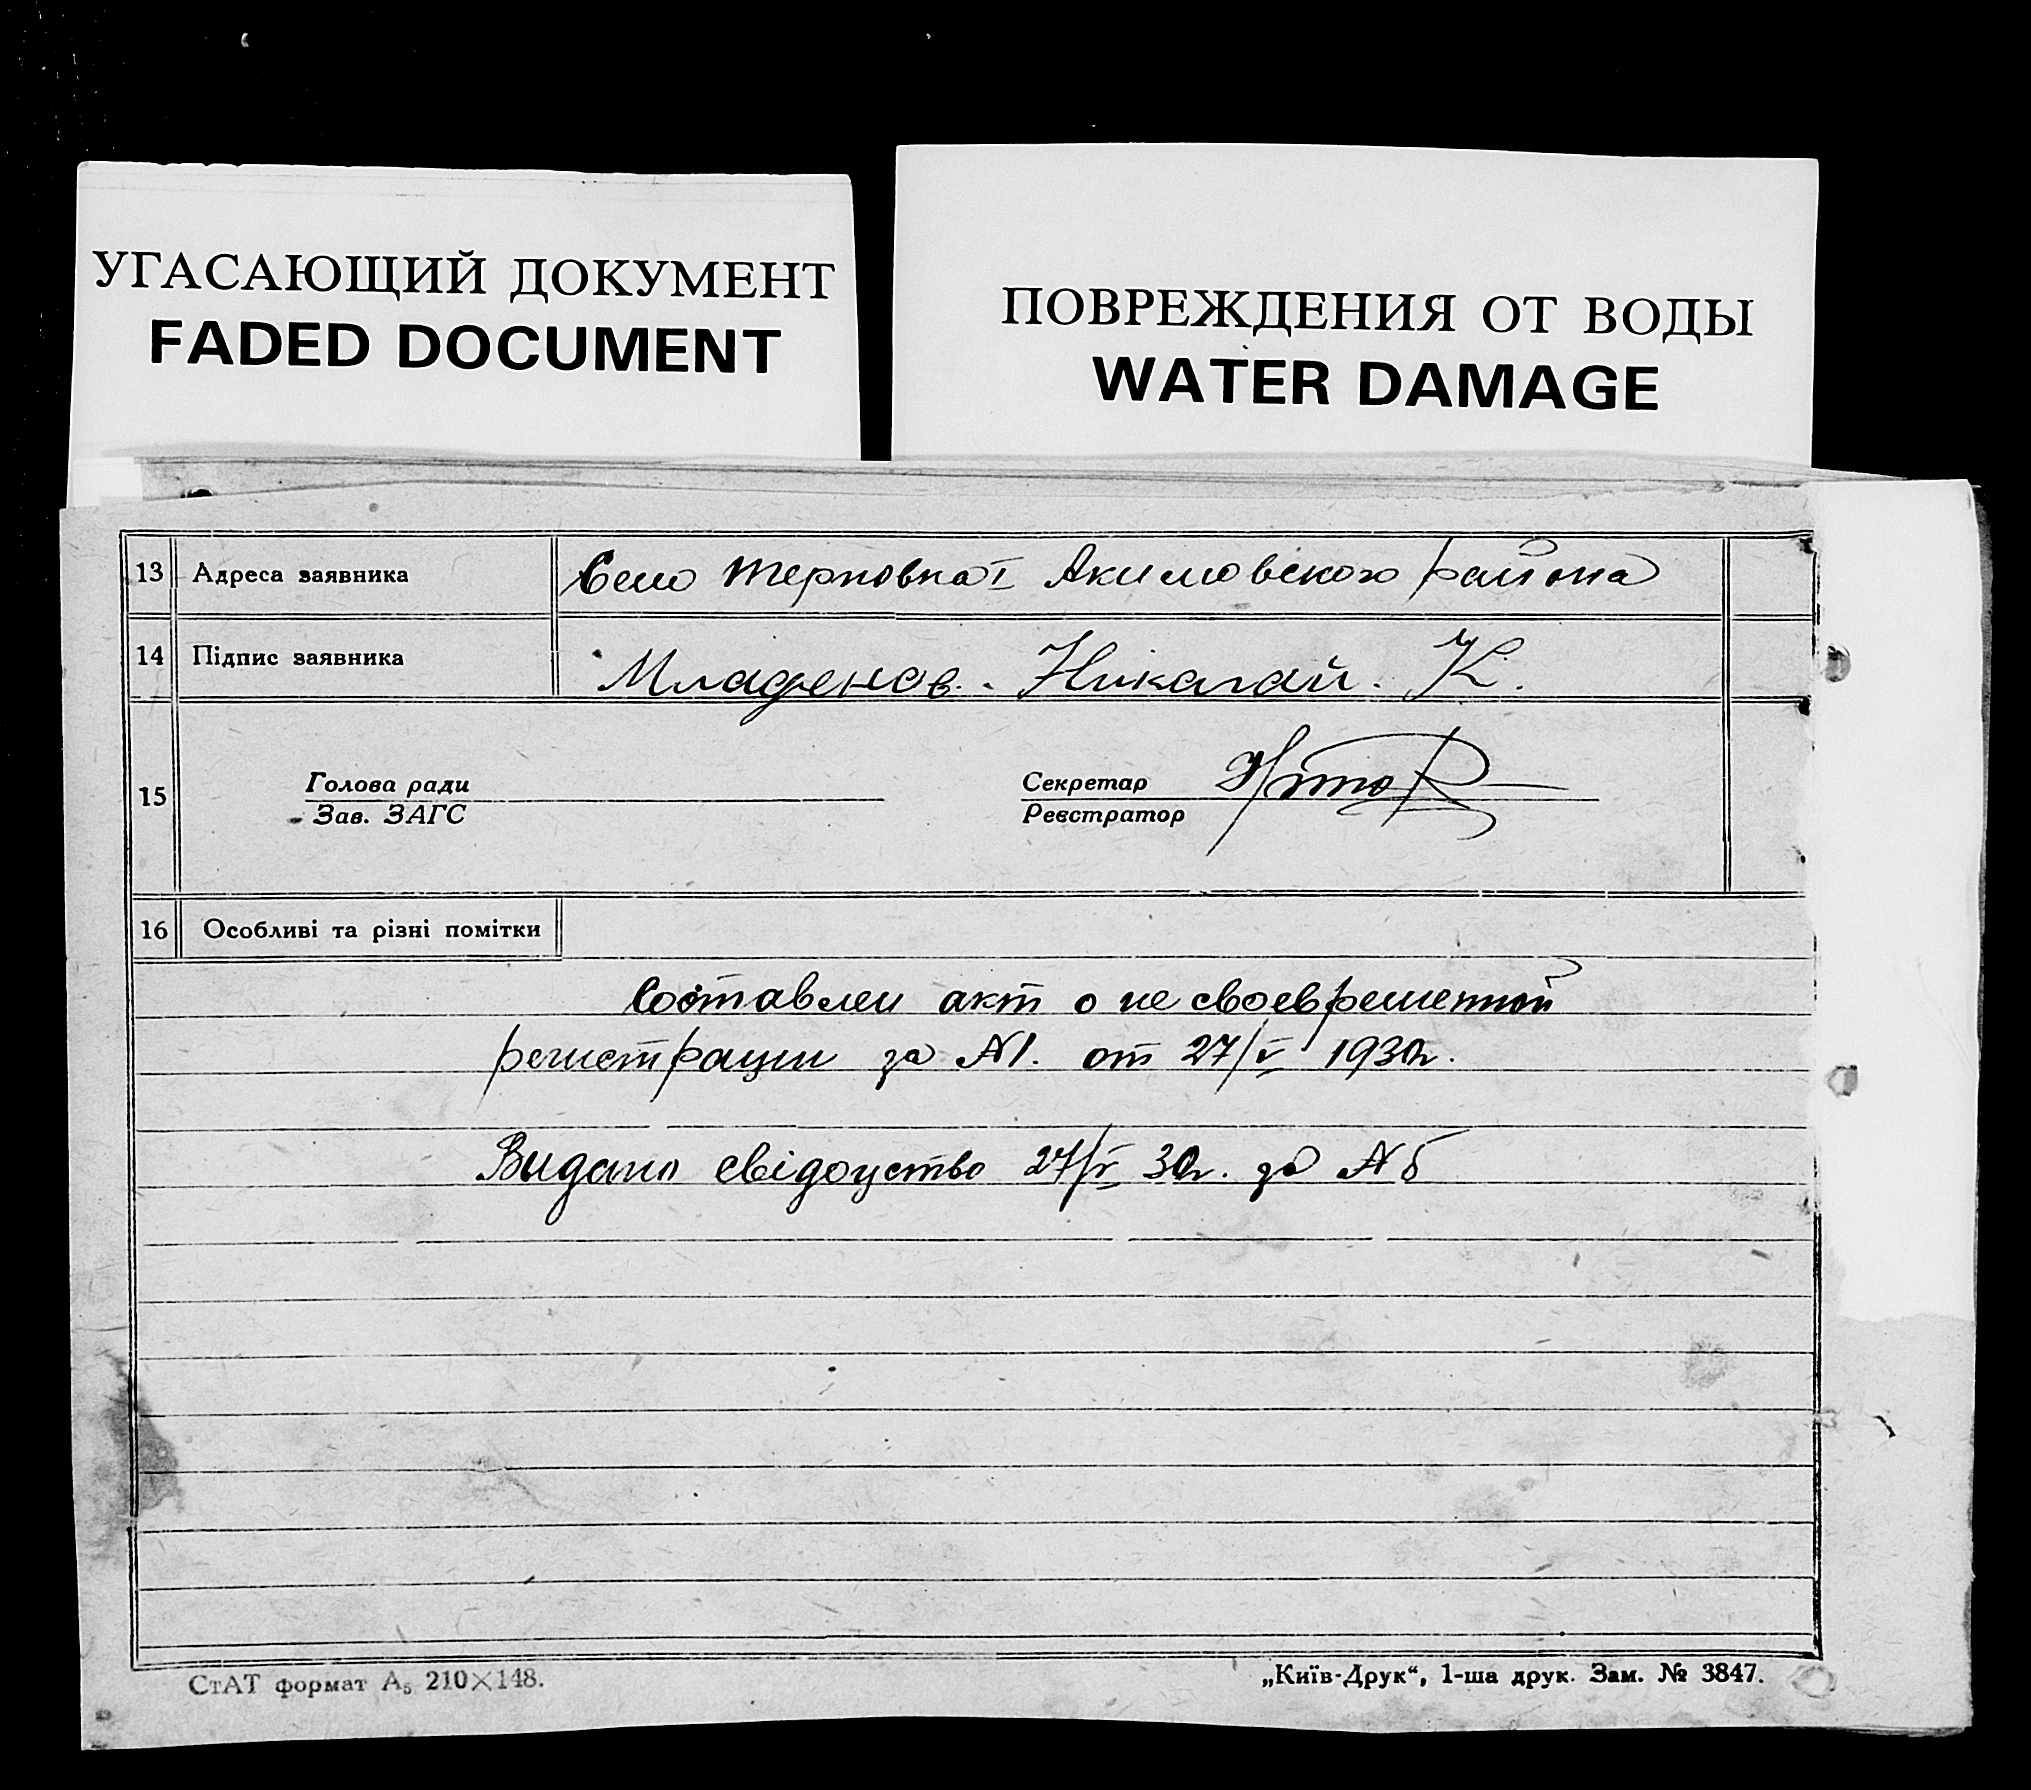 УГАСАЮЩИЙ ДОКУМЕНТ
FADED DOCUMENT
ПОВРЕЖДЕНИЯ ОТ ВОДЫ
WATER DAMAGE
13 Адреса заявника Село Терновка I Акимовского района
14 Підпис заявника Младенов. Нікалай. К.
15 Голова ради
Зав. ЗАГС
Секретар
Реєстратор
16 Особливі та різні помітки
Составлен акт о не своевременной
регистрации за №1. от 27/V 1930г.
Видано свідоцтво 27/V 30г. за №5
СтАТ формат А₅ 210×148.
„Київ-Друк“, 1-ша друк. Зам. № 3847.